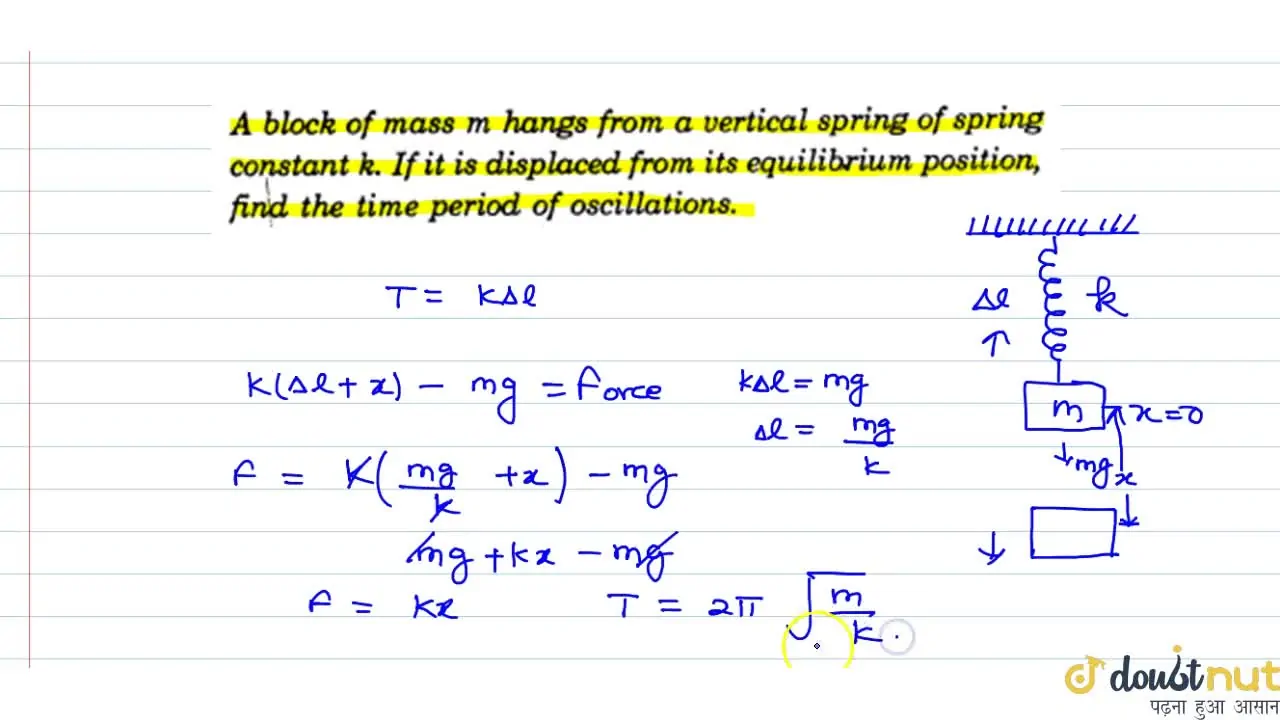 A block of mass m hangs from a vertical spring of spring
constant k. If it is displaced from its equilibrium position,
find the time period of oscillations.
T = kΔl
Δl
k
k(Δl + x) - mg = Force
kΔl = mg
m
x=0
Δl = mg/k
mg
x
F = K(mg/k + x) - mg
mg + kx - mg
F = kx
T = 2π √(m/k)
doubtnut
पढ़ना हुआ आसान